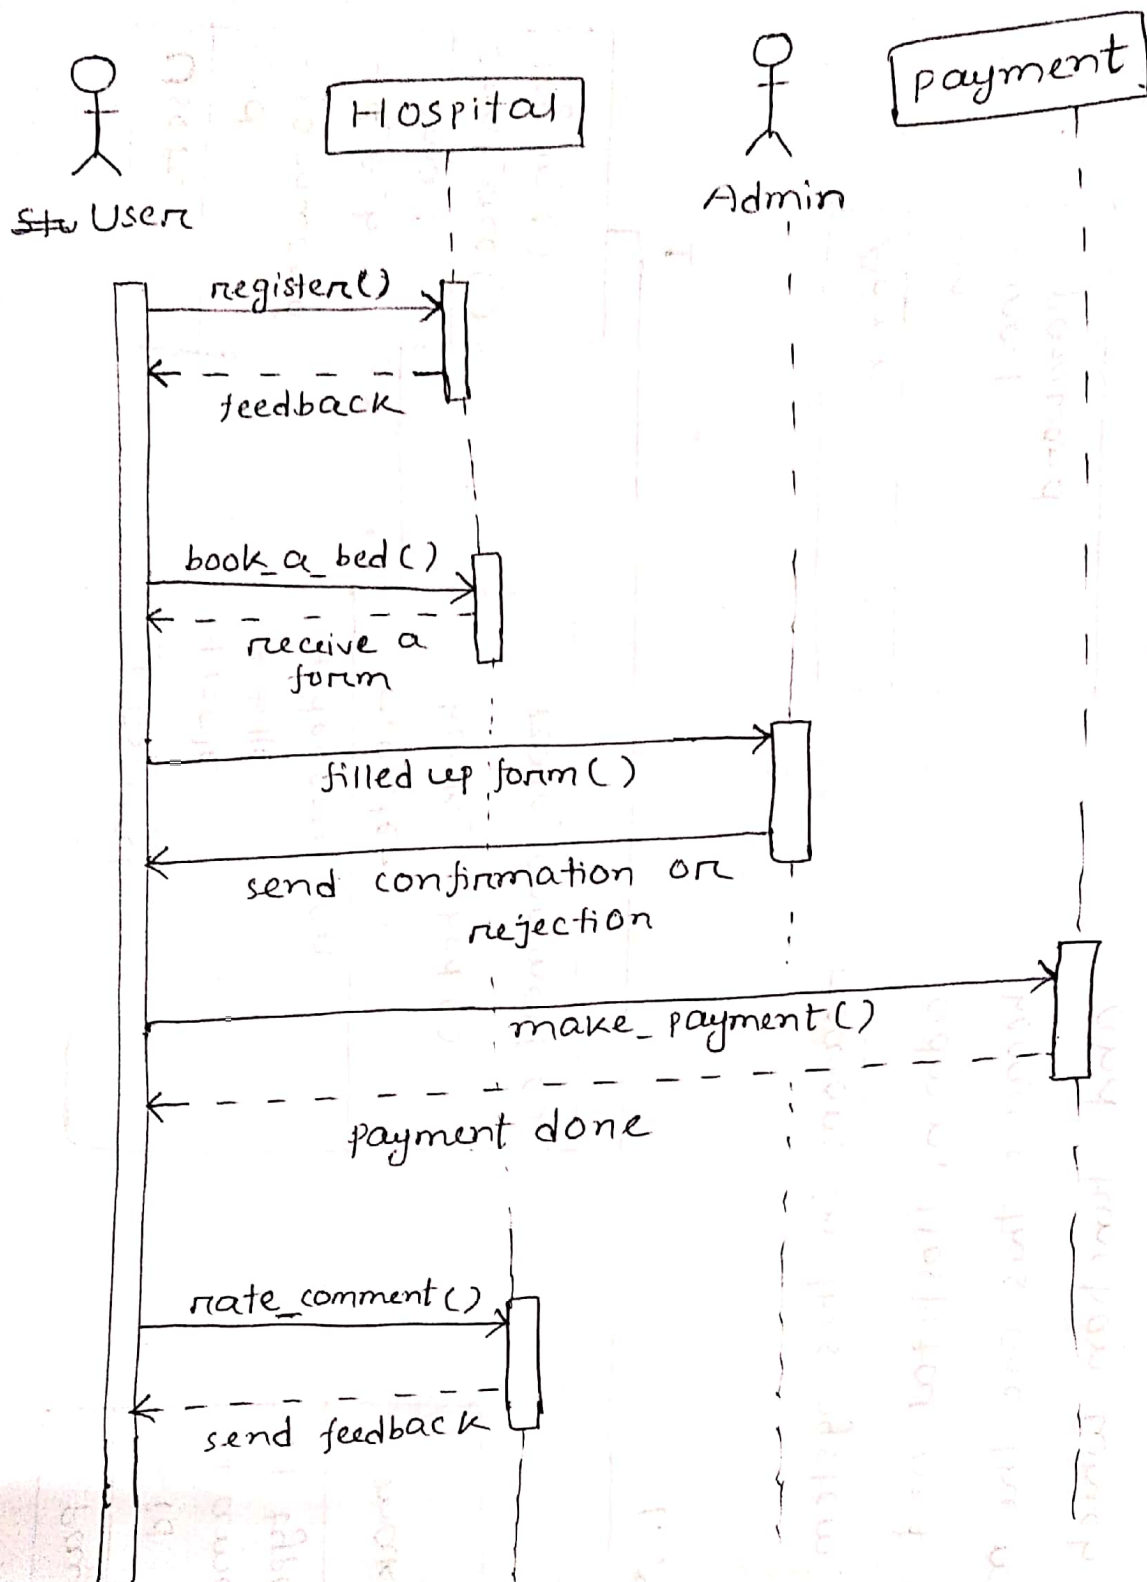 Hospital
payment
Stu User
Admin
register()
feedback
book_a_bed()
receive a
form
filled up form()
send confirmation or
rejection
make_payment()
payment done
rate_comment()
send feedback